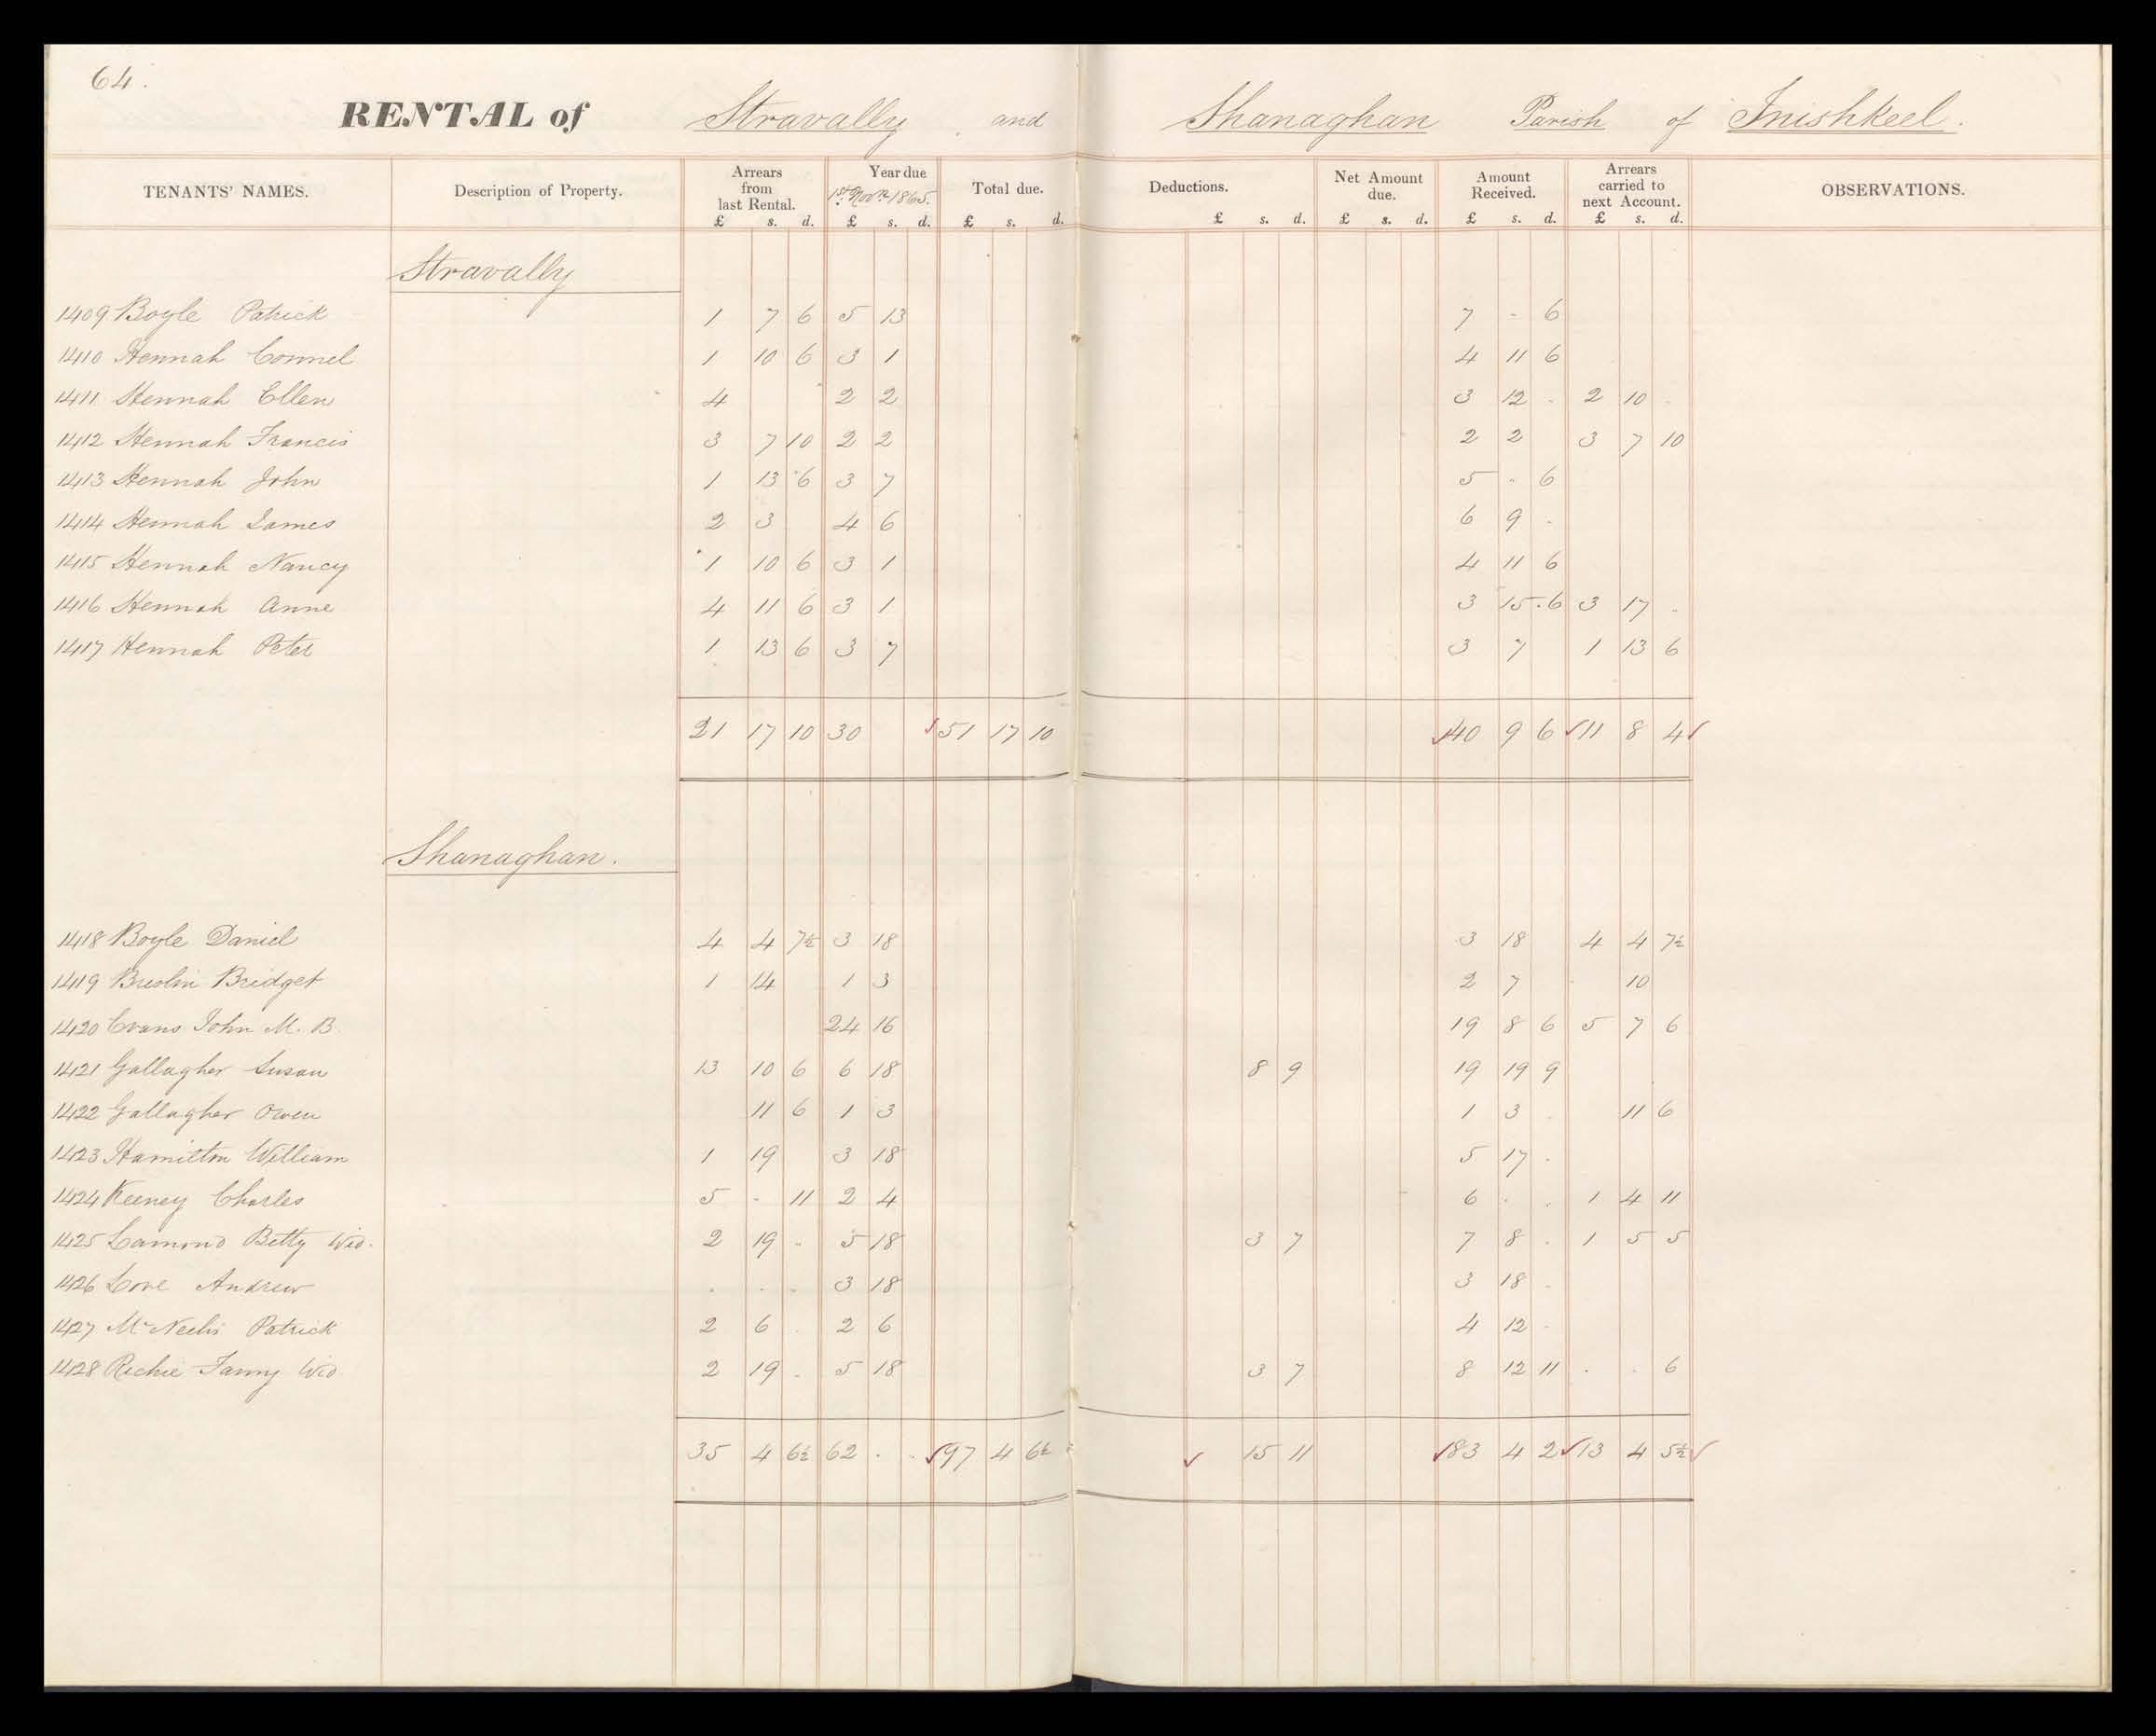 64.
RENTAL of Stravally and Shanaghan Parish of Inishkeel.
TENANTS' NAMES. Description of Property. Arrears from last Rental. Year due 1st Novr 1865. Total due. Deductions. Net Amount due. Amount Received. Arrears carried to next Account. OBSERVATIONS.
£ s. d. £ s. d. £ s. d. £ s. d. £ s. d. £ s. d. £ s. d.
Stravally
1409 Boyle Patrick 1 7 6 5 13 7 - 6
1410 Hennah Connel 1 10 6 3 1 4 11 6
1411 Hennah Ellen 4 2 2 3 12 - 2 10 .
1412 Hennah Francis 3 7 10 2 2 2 2 3 7 10
1413 Hennah John 1 13 6 3 7 5 - 6
1414 Hennah James 2 3 4 6 6 9 -
1415 Hennah Nancy 1 10 6 3 1 4 11 6
1416 Hennah Anne 4 11 6 3 1 3 15 6 3 17 .
1417 Hennah Peter 1 13 6 3 7 3 7 1 13 6
21 17 10 30 51 17 10 40 9 6 11 8 4
Shanaghan.
1418 Boyle Daniel 4 4 7½ 3 18 3 18 4 4 7½
1419 Breslin Bridget 1 14 1 3 2 7 10
1420 Evans John M. B. 24 16 19 8 6 5 7 6
1421 Gallagher Susan 13 10 6 6 18 8 9 19 19 9
1422 Gallagher Owen 11 6 1 3 1 3 . 11 6
1423 Hamilton William 1 19 3 18 5 17 .
1424 Keeney Charles 5 - 11 2 4 6 . . 1 4 11
1425 Lamond Betty Wid. 2 19 - 5 18 3 7 7 8 . 1 5 5
1426 Love Andrew . . . 3 18 3 18 .
1427 McNeelis Patrick 2 6 . 2 6 4 12 .
1428 Richie Fanny Wid 2 19 . 5 18 3 7 8 12 11 . . 6
35 4 6½ 62 . . 97 4 6½ 15 11 83 4 2 13 4 5½